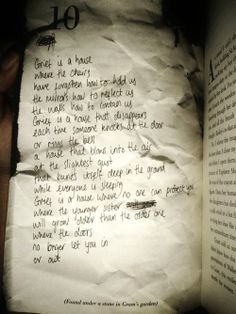 10
Grief is a house
where the chairs
have forgotten how to hold us
the mirrors how to reflect us
the walls how to contain us
Grief is a house that disappears
each time someone knocks at the door
or rings the bell
a house that blows into the air
at the slightest gust
that buries itself deep in the ground
while everyone is sleeping
Grief is a house where no one can protect you
where the younger sister
will grow older than the older one
where the doors
no longer let you in
or out
(Found under a stone in Gram's garden)